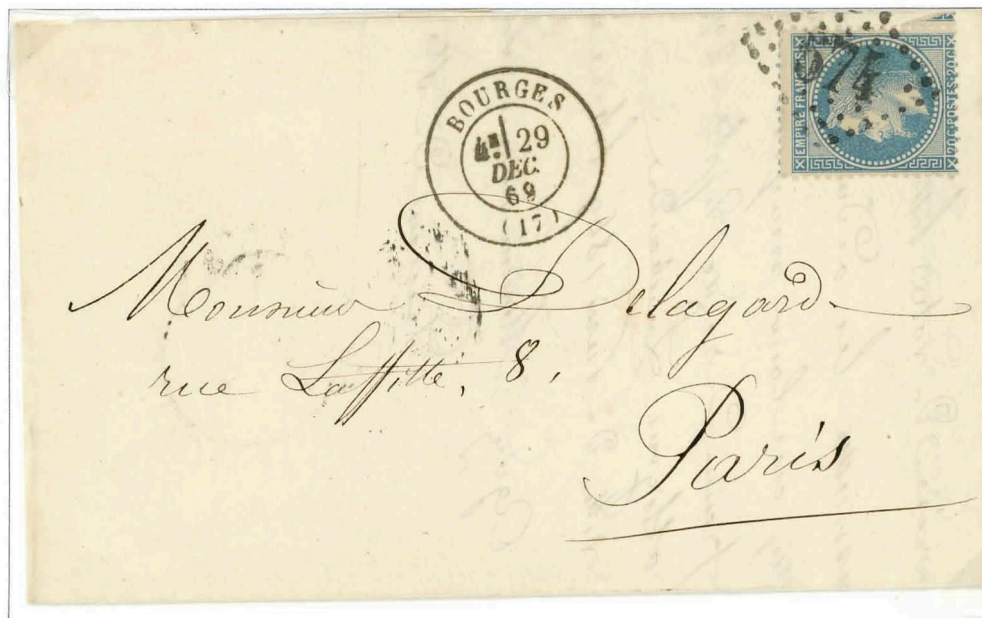 BOURGES
4E 29
DEC.
69
(17)
EMPIRE FRANC
20 C POSTES 20 C
Monsieur Delagard
rue Laffitte, 8,
Paris